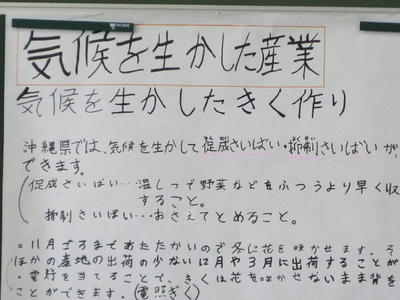 気候を生かした産業
気候を生かしたきく作り
沖縄県では、気候を生かして促成さいばい・抑制さいばいが、
できます。
促成さいばい…温しつで野菜などをふつうより早く収
すること。
抑制さいばい…おさえてとめること。
。11月ごろまであたたかいので冬に花を咲かせます。そ
ほかの産地の出荷の少ない1月や3月に出荷することが
・電灯を当てることで、きくは花を咲かせないまま背を
ことができます。(電照ぎく)